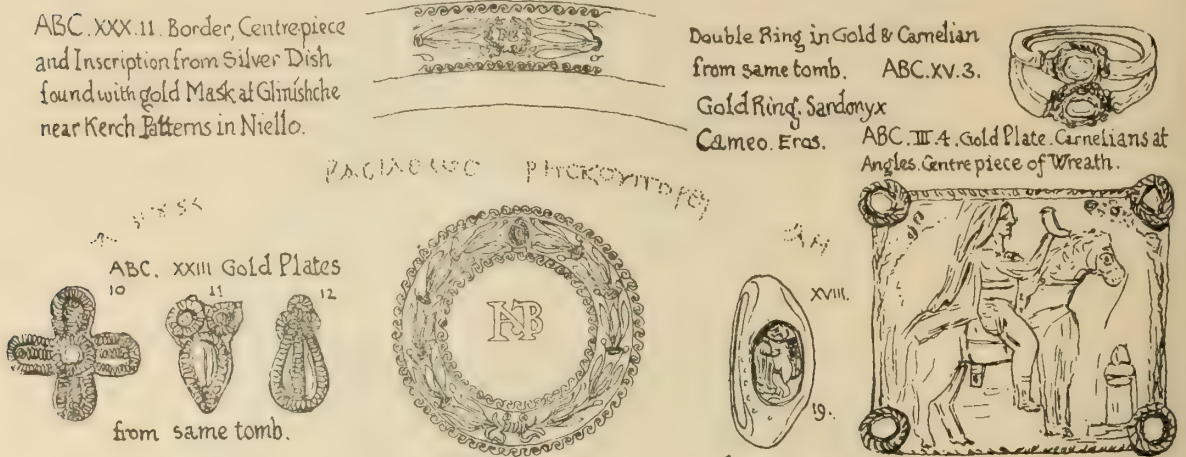 ABC. XXX.11. Border, Centrepiece
and Inscription from Silver Dish
found with gold Mask at Glinishche
near Kerch Patterns in Niello.
Double Ring in Gold & Carnelian
from same tomb. ABC.XV.3.
Gold Ring. Sardonyx
Cameo. Eros.
ABC.III.4. Gold Plate. Carnelians at
Angles. Centrepiece of Wreath.
ABC. XXIII Gold Plates
10 11 12
from same tomb.
XVIII.
19.